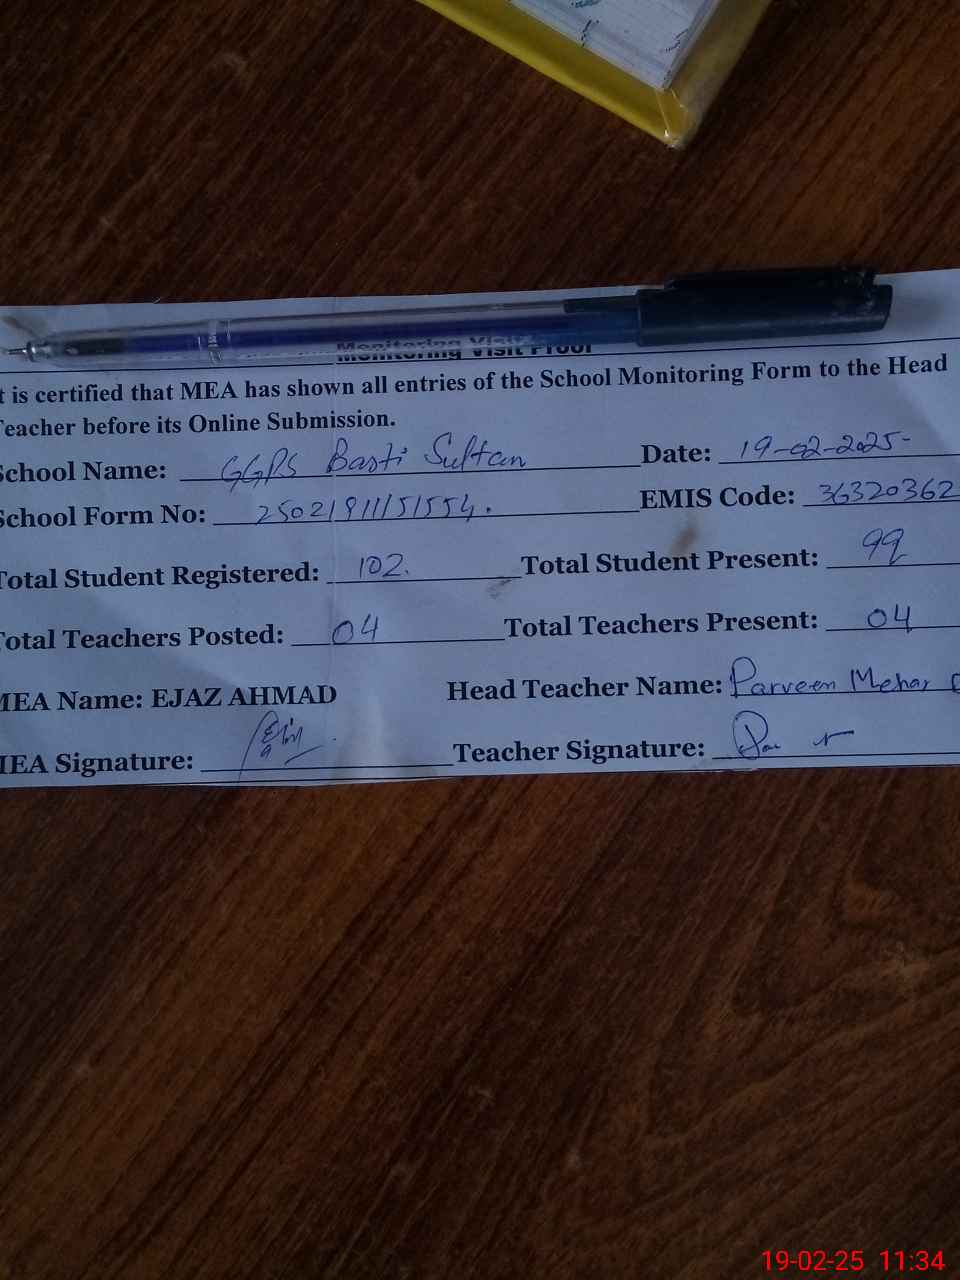 Monitoring Visit Proof
t is certified that MEA has shown all entries of the School Monitoring Form to the Head
Teacher before its Online Submission.
School Name: GGPS Basti Sultan Date: 19-02-2025-
School Form No: 25021911151554. EMIS Code: 36320362
Total Student Registered: 102. Total Student Present: 99
Total Teachers Posted: 04 Total Teachers Present: 04
MEA Name: EJAZ AHMAD Head Teacher Name: Parveen Mehar
MEA Signature: Teacher Signature:
19-02-25 11:34